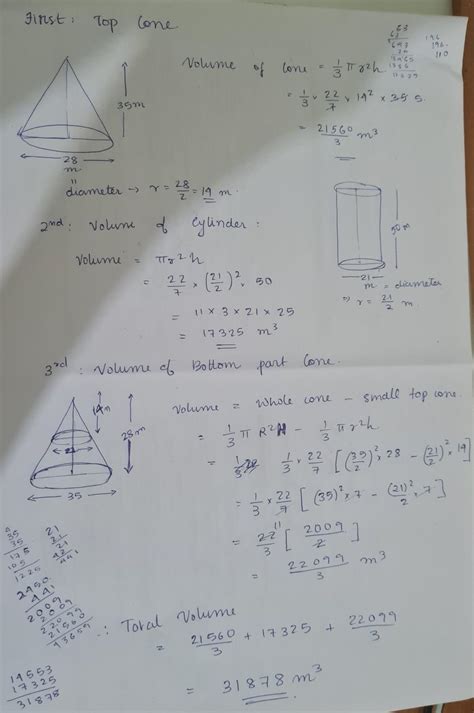 First: Top Cone
35m
28
m
11
diameter → r = 28/2 = 14 m.
Volume of Cone = 1/3 πr²h
= 1/3 × 22/7 × 14² × 35
= 21560/3 m³
2nd: Volume of Cylinder:
50m
21
m = diameter
⇒ r = 21/2 m.
Volume = πr²h
= 22/7 × (21/2)² × 50
= 11 × 3 × 21 × 25
= 17325 m³
3rd: Volume of Bottom part Cone.
14m
28m
21
35
Volume = whole cone - small top cone.
= 1/3 π R²H - 1/3 πr²h
= 1/3 × 22/7 [(35/2)² × 28 - (21/2)² × 14]
= 1/3 × 22/7 [(35)² × 7 - (21)²/2 × 7]
= 22/3 [2009/2]
= 22099/3 m³
35
35
175
105
1225
21
21
21
42
441
2450
441
2009
2009
2009
22099
21560
43659
∴ Total Volume
= 21560/3 + 17325 + 22099/3
= 31878 m³
14553
17325
31878